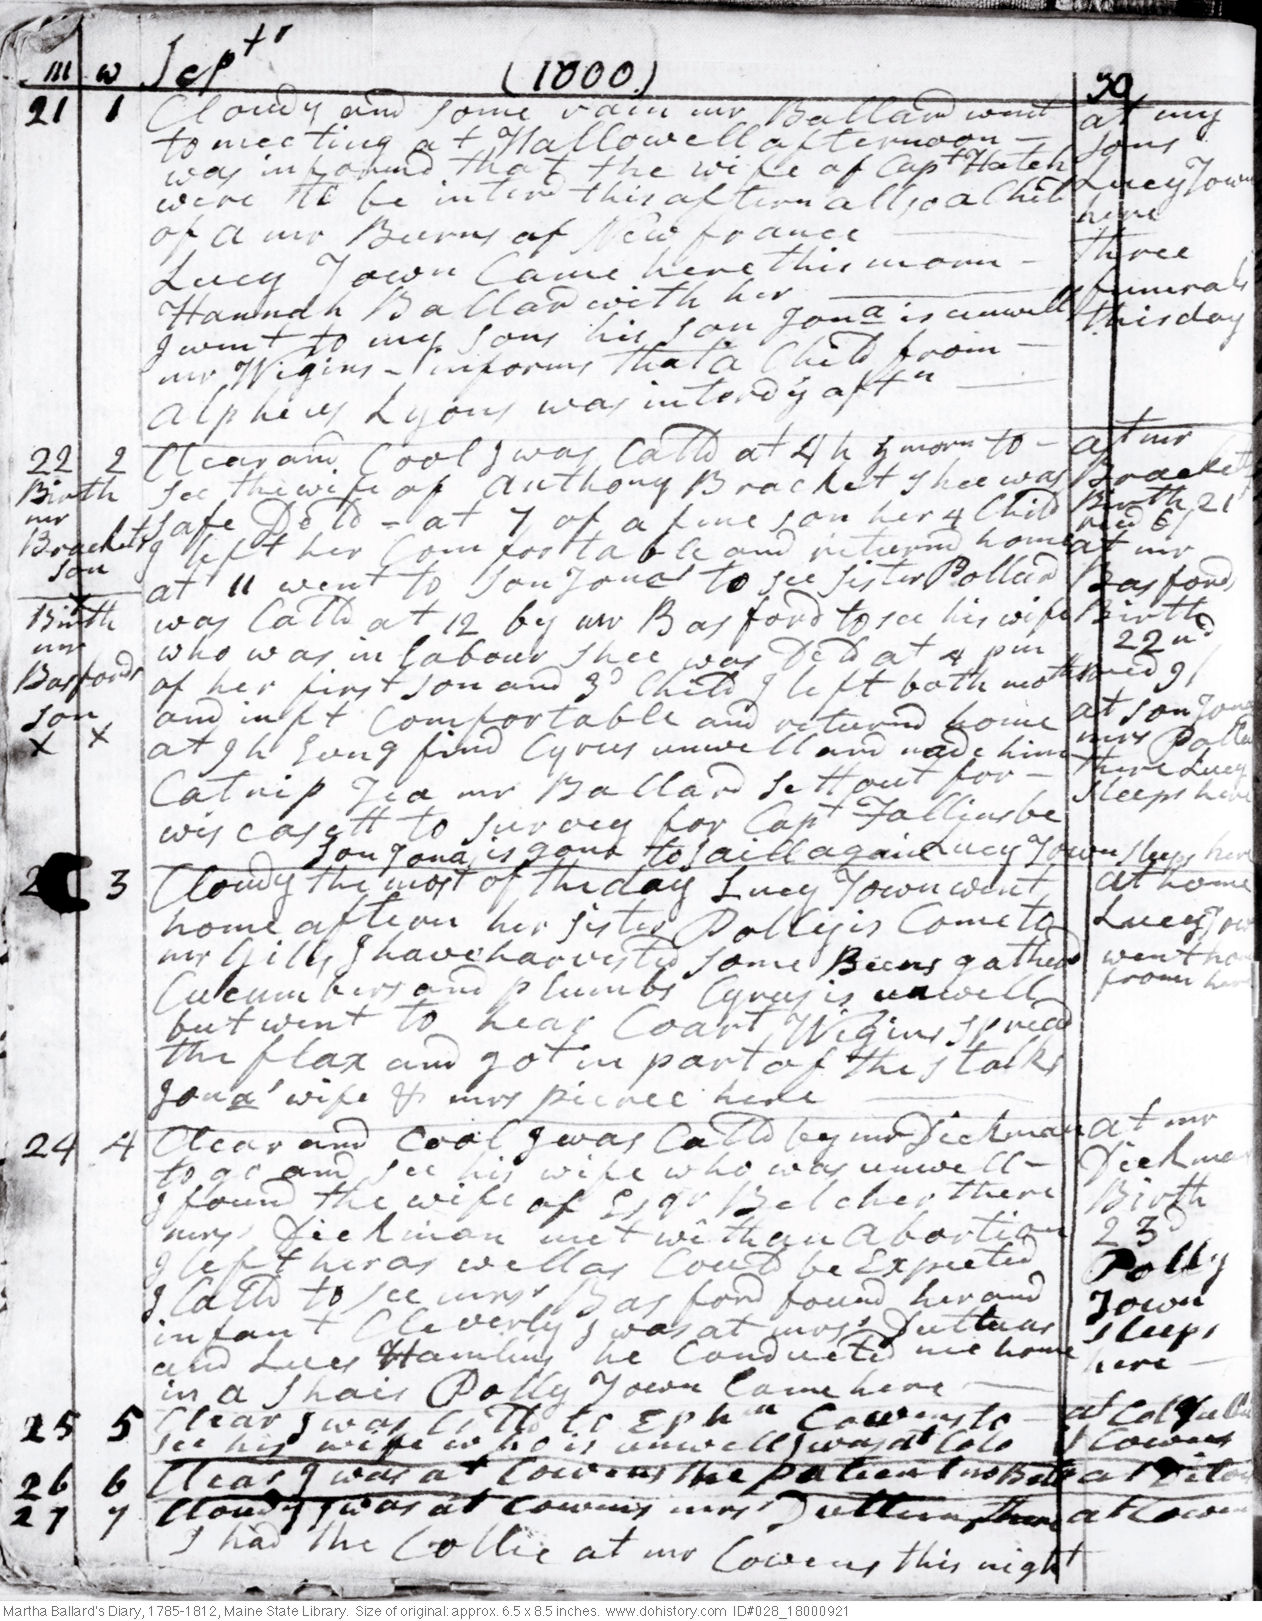 m w Septr (1800) 39
21 1 Cloudy and some rain mr Ballard went at my
to meeting at Hallowell afternoon - sons
was informd that the wife of Capt Hatch Lucy Town
were to be interd this aftern allso a Child here
of a mr Burns of New france three
Lucy Town Came here this morn - funerals
Hannah Ballard with her this day
I went to my sons his son Jona is unwell
mr Wigins - informs that a Child from -
Alpheus Lyons was interd ys aftn
22 2 Clear and Cool I was Calld at 4 h ys morn to - at mr
Birth see the wife of Anthony Bracket shee was Brackets
mr safe Deld - at 7 of a fine son her 4 Child Birth 21st
Brackets I left her Comfortable and returnd home recd 6/
son at 11 went to son Jonas to see sister Pollard at mr Basfords
Birth was Calld at 12 by mr Basford to see his wife Birth
mr who was in labour shee was Deld at 4 pm 22nd
Basfords of her first son and 3d Child I left both mothr recd 9/
son and inft Comfortable and returnd home at son Jonas
x x at 9 h Evng find Cyrus unwell and made him mrs Pollard
Catnip Tea mr Ballard sett out for - there Lucy
wiscasett to survey for Capt sleeps here
son Jona is gone to saill again Lucy Town sleeps here
23 3 Cloudy the most of the day Lucy Town went at home
home aftern her sister Polly is Come to Lucy Town
mr Gills I have harvested some Beens gatherd went home
Cucumbers and plumbs Cyrus is unwell from here
but went to hear Coart Wigins spread
the flax and got in part of the stalks
Jonas' wife & mrs pierce here
24 4 Clear and Cool I was Calld by mr Dickman at mr
to go and see his wife who was unwell - Dickmans
I found the wife of Esqr Belcher there Birth
mrs Dickman met with an abortion 23d
I left her as well as Could be Expected Polly
I Calld to see mrs Basford found her and Town
infant Cleverly I was at mrs Duttuns sleeps
and Lues Hamlins he Conducted me home here
in a shais Polly Town Came here
25 5 Clear I was Calld to Ephm Cowens to - at Col
see his wife who is unwell I was at Colo & Cowens
26 6 Clear I was at Cowens the patient no Betr at
27 7 Cloudy I was at Cowens mrs Duttun there at Cowens
I had the Collic at mr Cowens this night
Martha Ballard's Diary, 1785-1812, Maine State Library. Size of original: approx. 6.5 x 8.5 inches. www.dohistory.com ID#028_18000921